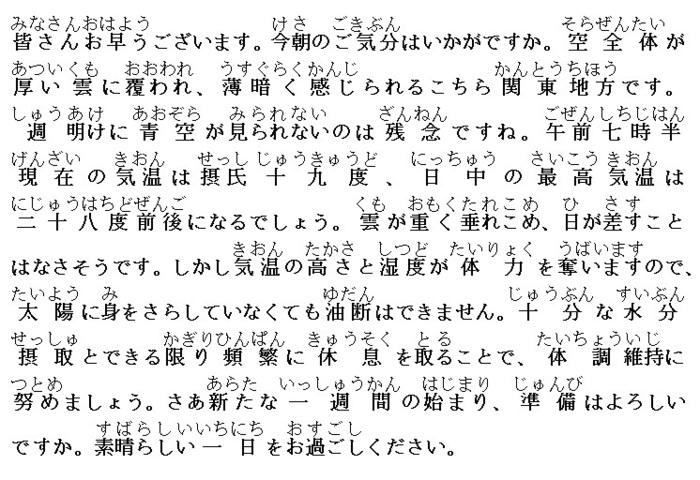 みなさんおはよう けさ ごきぶん そらぜんたい
皆さんお早うございます。今朝のご気分はいかがですか。空全体が
あついくも おおわれ うすぐらくかんじ かんとうちほう
厚い雲に覆われ、薄暗く感じられるこちら関東地方です。
しゅうあけ あおぞら みられない ざんねん ごぜんしちじはん
週明けに青空が見られないのは残念ですね。午前七時半
げんざい きおん せっし じゅうきゅうど にっちゅう さいこう きおん
現在の気温は摂氏十九度、日中の最高気温は
にじゅうはちどぜんご くも おもくたれこめ ひ さす
二十八度前後になるでしょう。雲が重く垂れこめ、日が差すこと
きおん たかさ しつど たいりょく うばいます
はなさそうです。しかし気温の高さと湿度が体力を奪いますので、
たいよう み ゆだん じゅうぶん すいぶん
太陽に身をさらしていなくても油断はできません。十分な水分
せっしゅ かぎりひんぱん きゅうそく とる たいちょういじ
摂取とできる限り頻繁に休息を取ることで、体調維持に
つとめ あらた いっしゅうかん はじまり じゅんび
努めましょう。さあ新たな一週間の始まり、準備はよろしい
すばらしいいちにち おすごし
ですか。素晴らしい一日をお過ごしください。